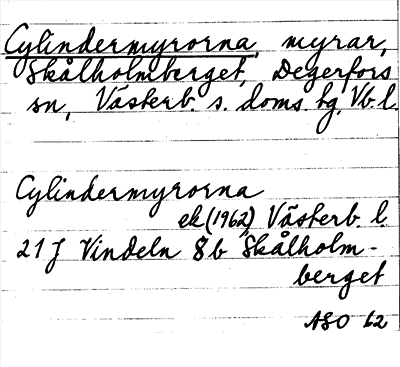 Cylindermyrorna, myrar,
Skålholmberget, Degerfors
sn, Västerb. s. doms. tg, Vb l.
Cylindermyrorna
ek (1962) Västerb. l.
21 J Vindeln 8b Skålholm-
berget
ASO 62